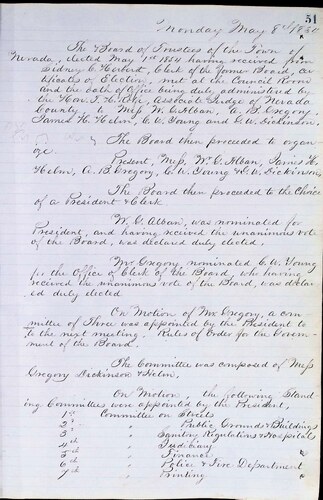 51
Monday May 8th 1854
The Board of Trustees of the Town of
Nevada, elected May 1st 1854 having received from
Sidney C. Herbert, Clerk of the former Board, cer
tificates of Election, met at the Council Rooms
and the oath of Office being duly administered by
the Hon. T. H. Associate Judge of Nevada
County to Mess W. G. Alban, A. B. Gregory,
James H. Helm, C. W. Young and G. W. Dickinson,
The Board then proceeded to organ
ize.
Present, Mess, W. G. Alban, James H.
Helm, A. B. Gregory, C. W. Young & G. W. Dickinson,
The Board then proceeded to the Choice
of a President & Clerk
W. G. Alban, was nominated for
President, and having received the unanimous vote
of the Board, was declared duly elected.
Mr Gregory nominated C. W. Young
for the Office of Clerk of the Board, who having
received the unanimous vote of the Board, was declar
ed duly elected
On Motion of Mr Gregory, a com
mittee of Three was appointed by the President to
to the next meeting. Rules of Order for the Govern
ment of the Board.
The Committee was composed of Mess
Gregory Dickinson & Helm,
On Motion the following Stand
ing Committees were appointed by the President,
1st Committee on Streets
2d " " Public Grounds & Buildings
3d " " Sanitary Regulations & Hospitals
4th " " Judiciary
5th " " Finance
6th " " Police & Fire Department
7th " " Printing